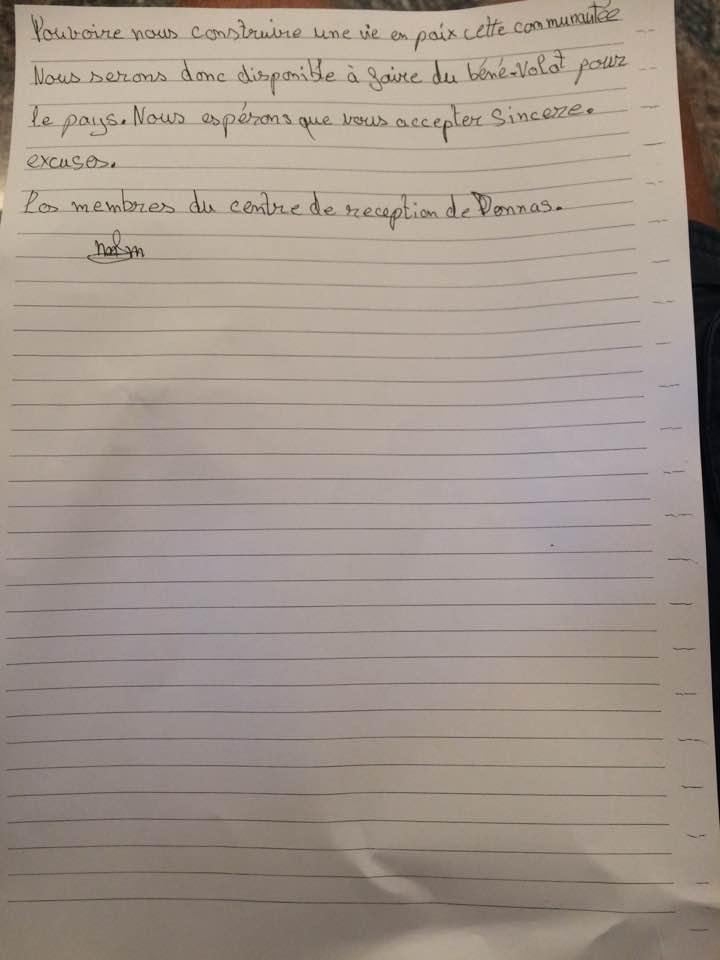 Pouvoire nous construire une vie en paix cette communautée
Nous serons donc disponible à faire du béné-Volat pour
le pays. Nous espérons que vous accepter Sincere.
excuses.
Les membres du centre de reception de Donnas.